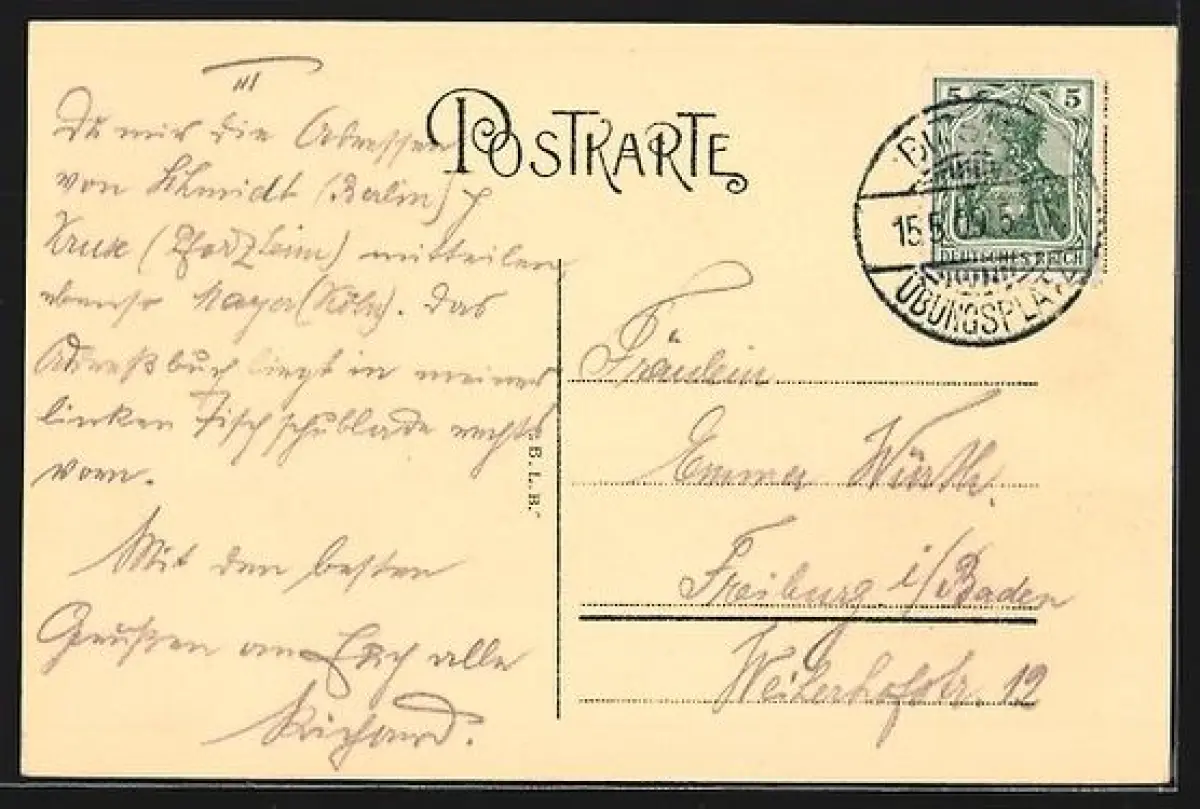 III
Du mir die Adressen
von Schmidt (Berlin)
Kruse (Pforzheim) mitteilen,
ebenso Mayer (Köln). Das
Adreßbuch liegt in meiner
linken Tischschublade rechts
vorn.
Mit den besten
Grüßen an Euch alle
Richard.
POSTKARTE
5 5
DEUTSCHES REICH
15.5.09.5
ÜBUNGSPLATZ
B.L.B.
Fräulein
Emma Würth.
Freiburg i/Baden
Weiherhofstr. 12